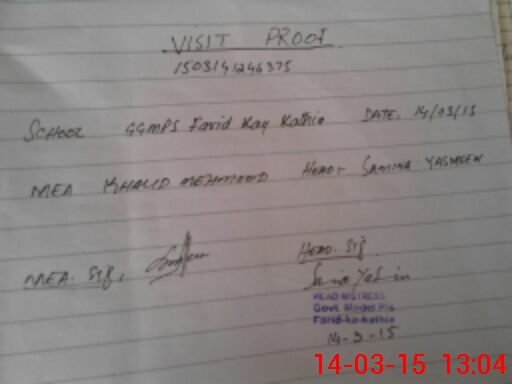 VISIT PROOF
1503141246375
SCHOOL GGMPS Farid Kay Kathia DATE. 14/03/15
MEA KHALID MEHMOOD HEAD:- SAMINA YASMEEN
MEA. Sig. HEAD. Sig
HEAD MISTRESS
Govt. Model Pls
Farid-ke-kathia
14-3-15
14-03-15 13:04